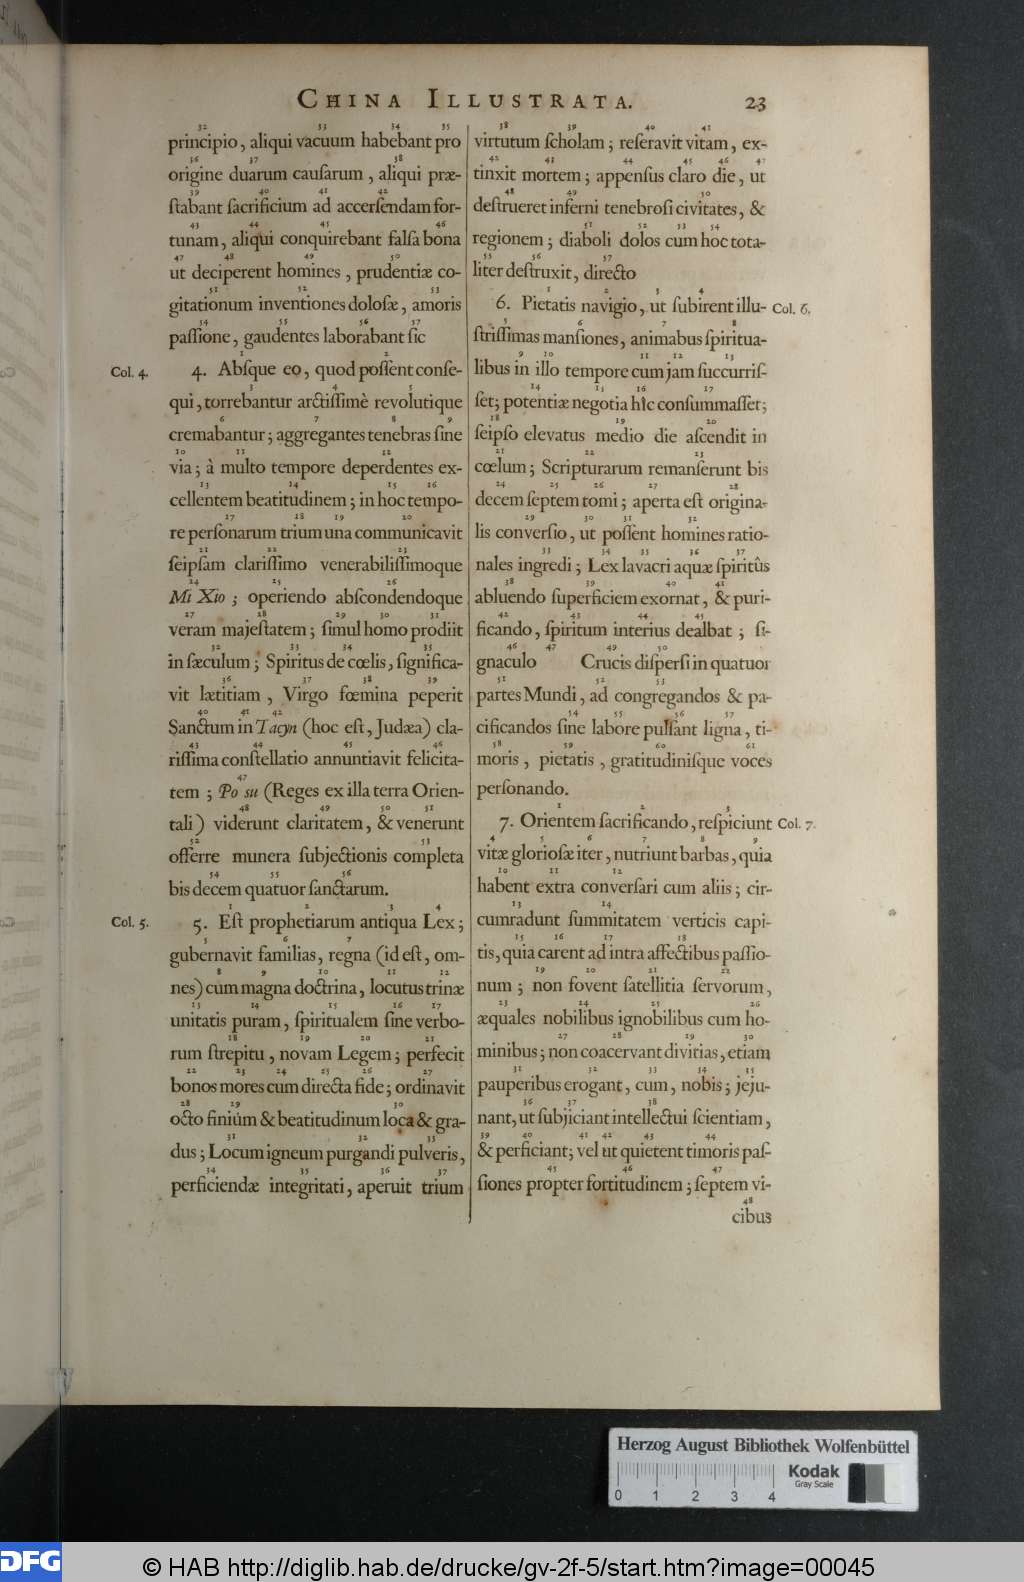 CHINA ILLUSTRATA. 23
32 33 34 35
principio, aliqui vacuum habebant pro
36 37 38
origine duarum cauſarum, aliqui præ-
39 40 41 42
ſtabant ſacrificium ad accerſendam for-
43 44 45 46
tunam, aliqui conquirebant falſa bona
47 48 49 50
ut deciperent homines, prudentiæ co-
51 52 53
gitationum inventiones doloſæ, amoris
54 55 56 57
paſſione, gaudentes laborabant ſic
1 2
Col. 4. 4. Abſque eo, quod poſſent conſe-
3 4 5
qui, torrebantur arctiſſimè revolutique
6 7 8 9
cremabantur; aggregantes tenebras ſine
10 11 12
via; à multo tempore deperdentes ex-
13 14 15 16
cellentem beatitudinem; in hoc tempo-
17 18 19 20
re perſonarum trium una communicavit
21 22 23
ſeipſam clariſſimo venerabiliſſimoque
24 25 26
Mi Xio; operiendo abſcondendoque
27 28 29 30 31
veram majeſtatem; ſimul homo prodiit
32 33 34 35
in ſæculum; Spiritus de cœlis, ſignifica-
36 37 38 39
vit lætitiam, Virgo fœmina peperit
40 41 42
Sanctum in Tacyn (hoc eſt, Judæa) cla-
43 44 45 46
riſſima conſtellatio annuntiavit felicita-
47
tem; Po su (Reges ex illa terra Orien-
48 49 50 51
tali) viderunt claritatem, & venerunt
52 53
offerre munera ſubjectionis completa
54 55 56
bis decem quatuor ſanctarum.
1 2 3 4
Col. 5. 5. Eſt prophetiarum antiqua Lex;
5 6 7
gubernavit familias, regna (id eſt, om-
8 9 10 11 12
nes) cum magna doctrina, locutus trinæ
13 14 15 16 17
unitatis puram, ſpiritualem ſine verbo-
18 19 20 21
rum ſtrepitu, novam Legem; perfecit
22 23 24 25 26 27
bonos mores cum directa fide; ordinavit
28 29 30
octo finium & beatitudinum loca & gra-
31 32 33
dus; Locum igneum purgandi pulveris,
34 35 36 37
perficiendæ integritati, aperuit trium
38 39 40 41
virtutum ſcholam; reſeravit vitam, ex-
42 43 44 45 46 47
tinxit mortem; appenſus claro die, ut
48 49 50
deſtrueret inferni tenebroſi civitates, &
51 52 53 54
regionem; diaboli dolos cum hoc tota-
55 56 57
liter deſtruxit, directo
1 2 3 4
6. Pietatis navigio, ut ſubirent illu- Col. 6.
5 6 7 8
ſtriſſimas manſiones, animabus ſpiritua-
9 10 11 12 13
libus in illo tempore cum jam ſuccurriſ-
14 15 16 17
ſet; potentiæ negotia hîc conſummaſſet;
18 19 20
ſeipſo elevatus medio die aſcendit in
21 22 23
cœlum; Scripturarum remanſerunt bis
24 25 26 27 28
decem ſeptem tomi; aperta eſt origina-
29 30 31 32
lis converſio, ut poſſent homines ratio-
33 34 35 36 37
nales ingredi; Lex lavacri aquæ ſpiritûs
38 39 40 41
abluendo ſuperficiem exornat, & puri-
42 43 44 45
ficando, ſpiritum interius dealbat; ſi-
46 47 49 50
gnaculo Crucis diſperſi in quatuor
51 52 53
partes Mundi, ad congregandos & pa-
54 55 56 57
cificandos ſine labore pulſant ligna, ti-
58 59 60 61
moris, pietatis, gratitudiniſque voces
perſonando.
1 2 3
7. Orientem ſacrificando, reſpiciunt Col. 7.
4 5 6 7 8 9
vitæ glorioſæ iter, nutriunt barbas, quia
10 11 12
habent extra converſari cum aliis; cir-
13 14
cumradunt ſummitatem verticis capi-
15 16 17 18
tis, quia carent ad intra affectibus paſſio-
19 20 21 22
num; non fovent ſatellitia ſervorum,
23 24 25 26
æquales nobilibus ignobilibus cum ho-
27 28 29 30
minibus; non coacervant divitias, etiam
31 32 33 34 35
pauperibus erogant, cum, nobis; jeju-
36 37 38
nant, ut ſubjiciant intellectui ſcientiam,
39 40 41 42 43 44
& perficiant; vel ut quietent timoris paſ-
45 46 47
ſiones propter fortitudinem; ſeptem vi-
48
cibus
Herzog August Bibliothek Wolfenbüttel
Kodak
Gray Scale
0 1 2 3 4
DFG
© HAB http://diglib.hab.de/drucke/gv-2f-5/start.htm?image=00045